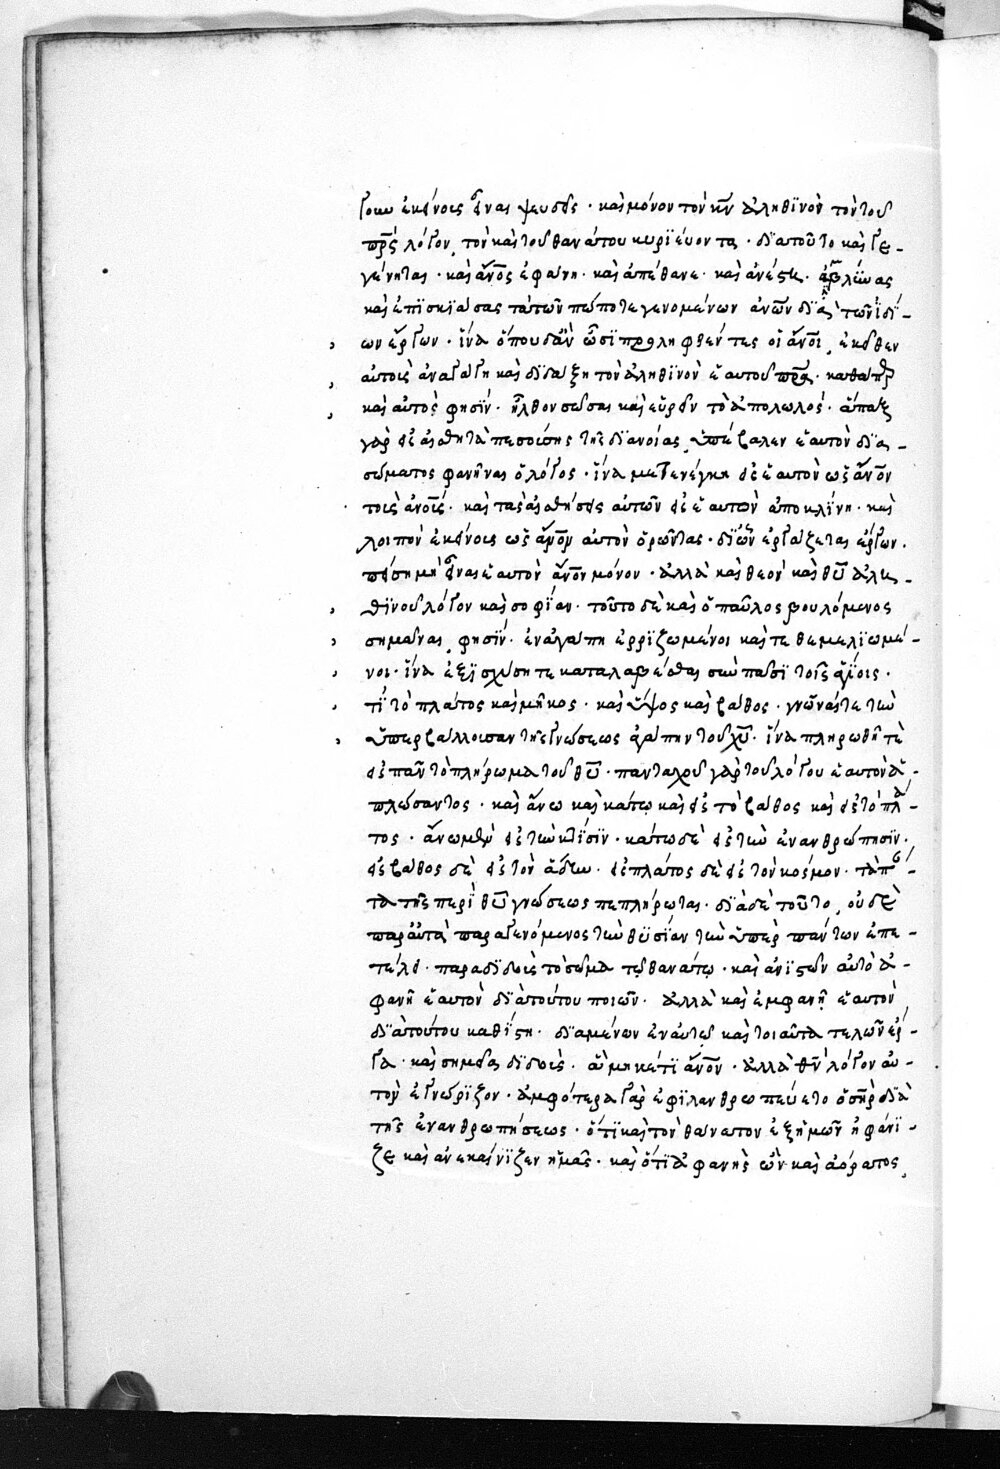 γουν ἐκείνοις εἶναι ψευδεῖς· καὶ μόνον τὸν κ̅ν̅ ἀληθϊνὸν τὸν τοῦ
π̅ρ̅ς̅ λόγον, τὸν καὶ τοῦ θανάτου κυριεύοντα· διατοῦτο καὶ γε-
γένηται· καὶ ἄν̅ο̅ς̅ ἐφάνη· καὶ ἀπέθανε· καὶ ἀνέστη· ἀμβλύνας
καὶ ἐπϊσκϊάσας τὰ τῶν πώποτε γενομένων ἀν̅ω̅ν̅ διὰ τῶν ϊδί-
ων ἔργων· ἵνα ὅπου δἂν ὦσϊ προληφθέντες οἱ ἄν̅ο̅ι̅, ἐκεῖθεν
αὐτοὺς ἀναγάγη καὶ διδάξη τὸν ἀληθϊνὸν ἑαυτοῦ π̅ρ̅α̅· καθάπερ
καὶ αὐτός φησϊν· ἦλθον σῶσαι καὶ εὑρεῖν τὸ ἀπολωλός· ἅπαξ
γὰρ εἰς αἰσθητὰ πεσούσης τῆς διανοίας, ὑπέβαλεν ἑαυτὸν διὰ
σώματος φανῆναι ὁ λόγος· ἵνα μετενέγκη εἰς ἑαυτὸν ὡς ἄν̅ο̅ν̅
τοὺς ἀν̅ο̅υ̅ς̅· καὶ τὰς αἰσθήσεις αὐτῶν εἰς ἑαυτὸν ἀποκλίνη· καὶ
λοιπὸν ἐκείνους ὡς ἄν̅ο̅ν̅ αὐτὸν ὁρῶντας· δι' ὧν ἐργάζεται ἔργων·
πείση μὴ εἶναι ἑαυτὸν ἄν̅ο̅ν̅ μόνον· ἀλλὰ καὶ θεὸν καὶ θ̅υ̅ ἀλη-
θϊνοῦ λόγον καὶ σοφίαν· τοῦτο δὲ καὶ ὁ παῦλος βουλόμενος
σημᾶναι, φησϊν· ἐν ἀγάπη ἐρριζωμένοι καὶ τεθεμελϊωμέ-
νοι· ἵνα ἐξϊσχύσητε καταλαβέσθαι σὺν πᾶσϊ τοῖς ἁγίοις·
τί τὸ πλάτος καὶ μῆκος· καὶ ὕψος καὶ βάθος· γνῶναί τε τὴν
ὑπερβάλλουσαν τῆς γνώσεως ἀγάπην τοῦ χ̅υ̅· ἵνα πληρωθῆτε
εἰς πᾶν τὸ πλήρωμα τοῦ θ̅υ̅· πανταχοῦ γὰρ τοῦ λόγου ἑαυτὸν ἁ-
πλώσαντος· καὶ ἄνω καὶ κάτω καὶ εἰς τὸ βάθος καὶ εἰς τὸ πλά-
τος· ἄνω μὲν εἰς τὴν κτίσϊν· κάτω δὲ εἰς τὴν ἐνανθρώπησϊν·
εἰς βάθος δὲ εἰς τὸν ἅδην· εἰς πλάτος δὲ εἰς τὸν κόσμον· τὰ πά-
ντα τῆς περὶ θ̅υ̅ γνώσεως πεπλήρωται· διὰ δὲ τοῦτο, οὐδὲ
παραυτὰ παραγενόμενος τὴν θυσίαν τὴν ὑπὲρ πάντων ἐπε-
τέλει· παραδϊδοὺς τὸ σῶμα τῷ θανάτῳ· καὶ ἀνϊστῶν αὐτὸ ἀ-
φανῆ ἑαυτὸν διὰ τούτου ποιῶν· ἀλλὰ καὶ ἐμφανῆ ἑαυτὸν
διὰ τούτου καθίστη· διαμένων ἐν αὐτῷ καὶ τοιαῦτα τελῶν ἔρ-
γα· καὶ σημεῖα δϊδοὺς· ἃ μηκέτϊ ἄν̅ο̅ν̅· ἀλλὰ θ̅ν̅ λόγον αὐ-
τὸν ἐγνώριζον· ἀμφότερα γὰρ ἐφϊλανθρωπεύετο ὁ σ̅η̅ρ̅ διὰ
τῆς ἐνανθρωπήσεως· ὅτϊ καὶ τὸν θάνατον ἐξ ἡμῶν ἠφάνϊ-
ζε καὶ ἀνεκαίνϊζεν ἡμᾶς· καὶ ὅτϊ ἀφανὴς ὢν καὶ ἀόρατος,